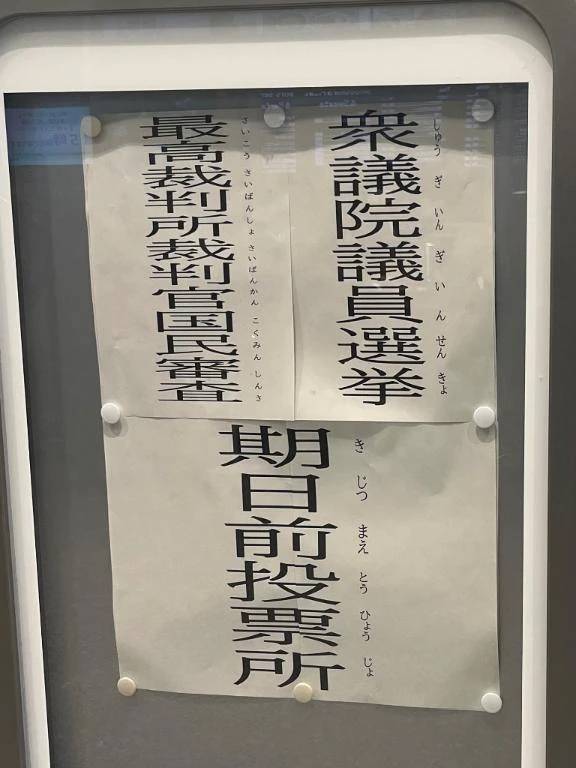 衆議院議員選挙
しゅう ぎ いん ぎ いん せん きょ
最高裁判所裁判官国民審査
さいこう さいばんしょ さいばんかん こくみん しんさ
期日前投票所
き じつ まえ とう ひょう じょ